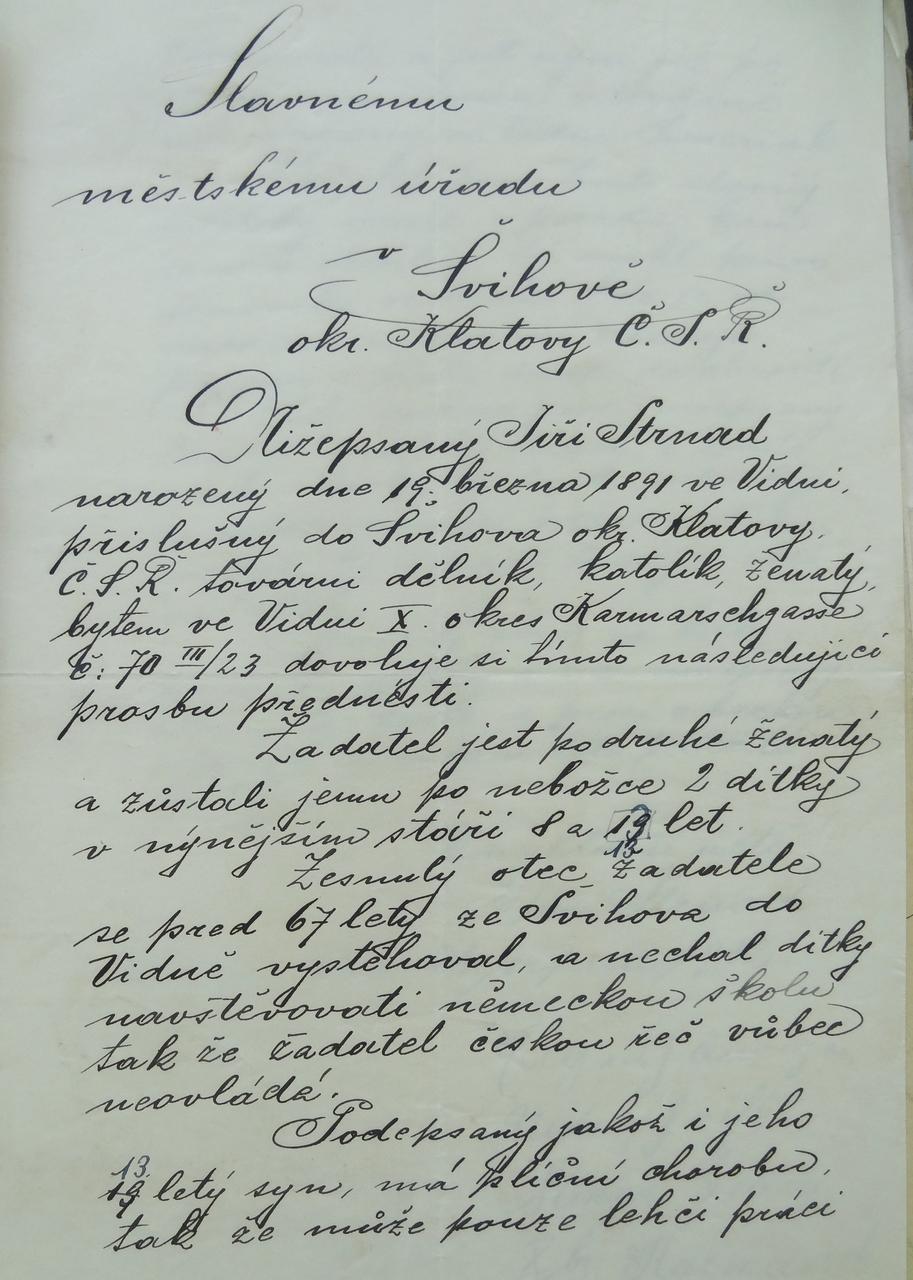 Slavnému
městskému úřadu
v Švihově
okr. Klatovy Č. S. Ř.
Nížepsaný Jiří Strnad
narozený dne 19. března 1891 ve Vídni,
příslušný do Švihova okr. Klatovy.
Č. S. Ř. tovární dělník, katolík, ženatý,
bytem ve Vídni X. okres Karmarschgasse
č: 70 III/23 dovoluje si tímto následující
prosbu přednésti.
Žadatel jest po druhé ženatý
a zůstali jemu po nebožce 2 dítky
v nýnějším stáří 8 a 19 let.
13
Zesnulý otec žadatele
se pred 67 lety ze Švihova do
Vídně vystěhoval, a nechal dítky
navštěvovati německou školu
tak že žadatel českou řeč vůbec
neovládá.
Podepsaný jakož i jeho
13.
19 letý syn, má plíční chorobu,
tak že může pouze lehčí práci